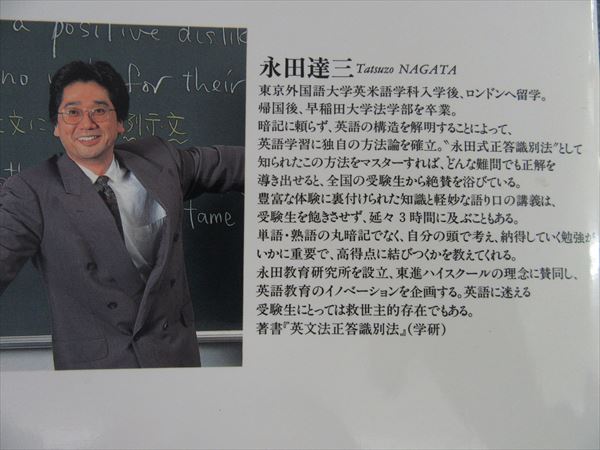 a positive dislik
no w for their
文に 例示文
tame
永田達三 Tatsuzo NAGATA
東京外国語大学英米語学科入学後、ロンドンへ留学。
帰国後、早稲田大学法学部を卒業。
暗記に頼らず、英語の構造を解明することによって、
英語学習に独自の方法論を確立。“永田式正答識別法”として
知られたこの方法をマスターすれば、どんな難問でも正解を
導き出せると、全国の受験生から絶賛を浴びている。
豊富な体験に裏付けられた知識と軽妙な語り口の講義は、
受験生を飽きさせず、延々3時間に及ぶこともある。
単語・熟語の丸暗記でなく、自分の頭で考え、納得していく勉強が
いかに重要で、高得点に結びつくかを教えてくれる。
永田教育研究所を設立、東進ハイスクールの理念に賛同し、
英語教育のイノベーションを企画する。英語に迷える
受験生にとっては救世主的存在でもある。
著書『英文法正答識別法』(学研)